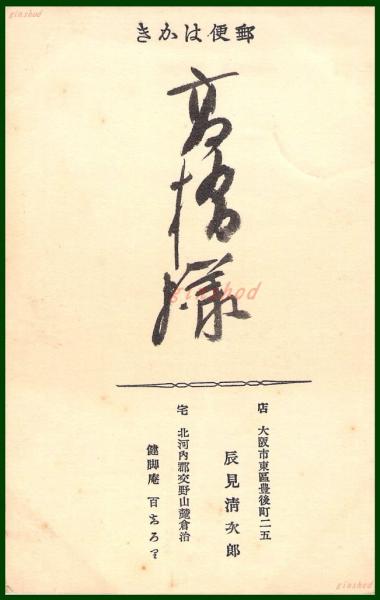 ginshod
郵便はかき
高橋様
ginshod
店 大阪市東區豊後町二五
辰見清次郎
宅 北河内郡交野山麓倉治
健脚庵 百おろ里
ginshod